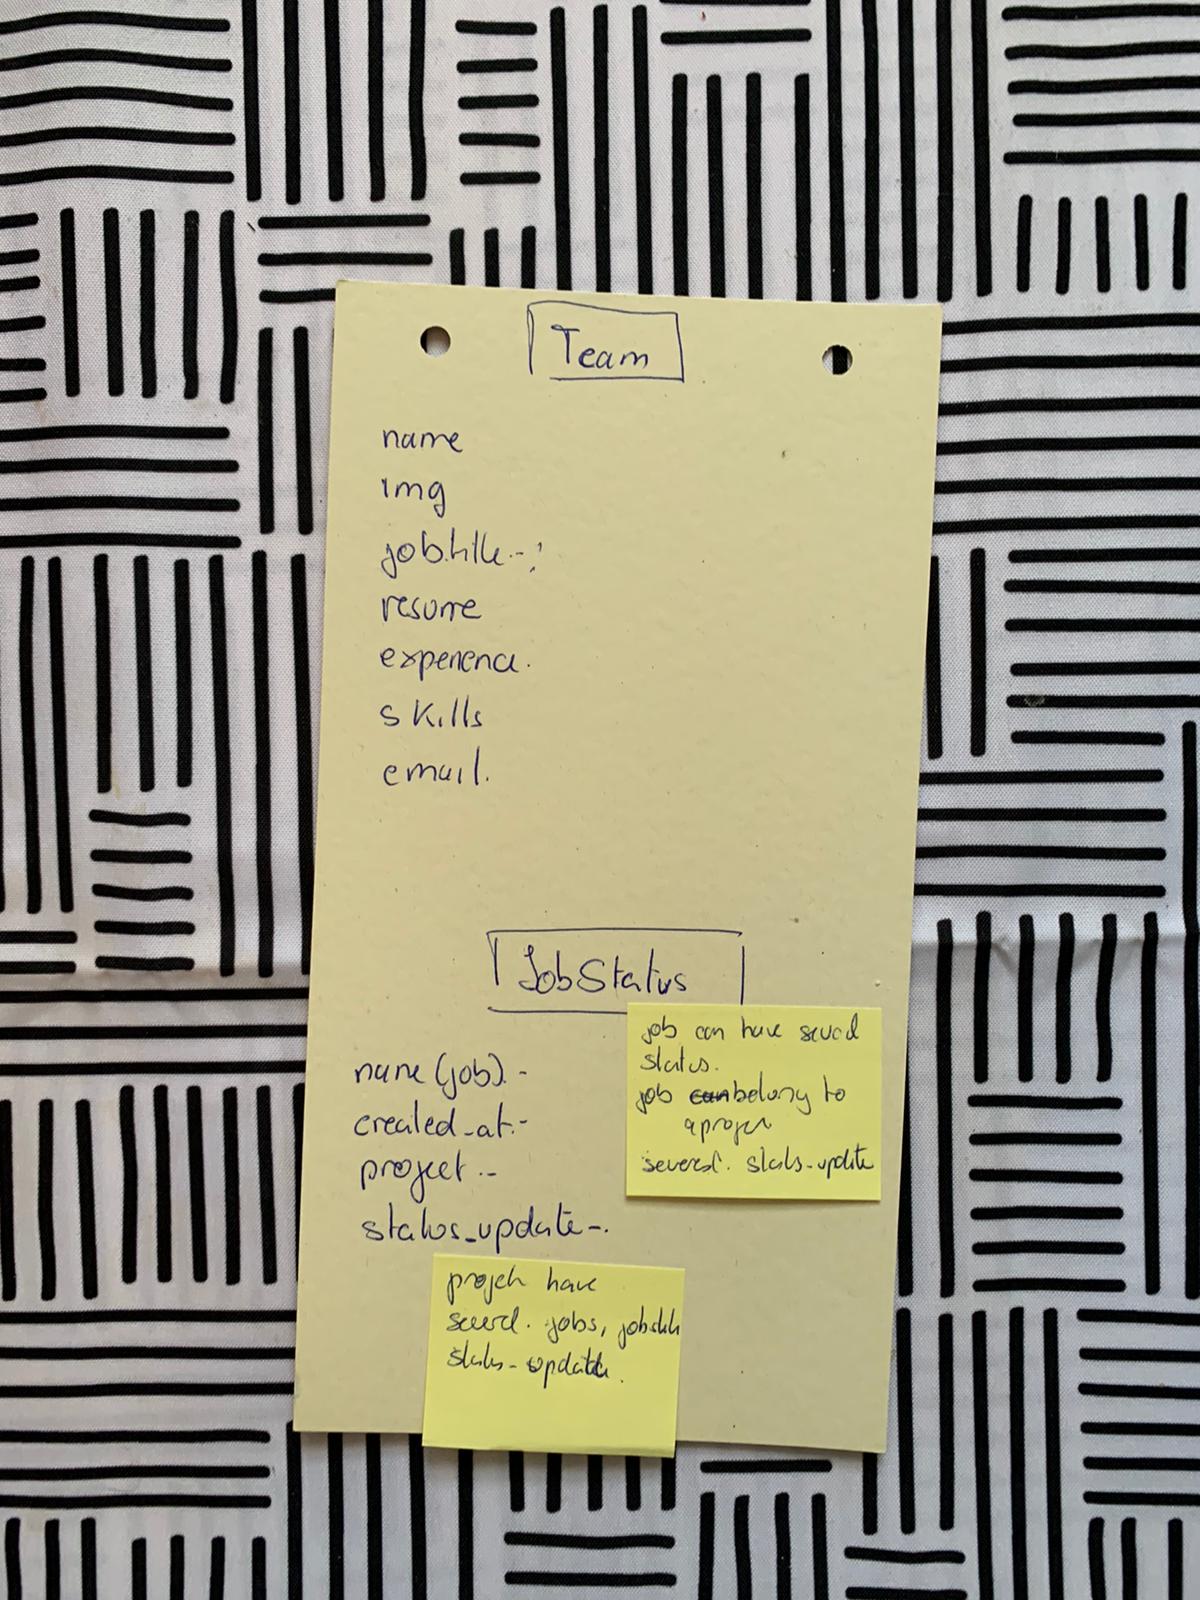 Team
name
img
job.title - :
resume
experience.
skills
email.
JobStatus
name (job). -
created_at. -
project . -
status_update - .
job can have several
status.
job can belong to
a project
several. status-update
project have
several. jobs, jobstatus
status-update.